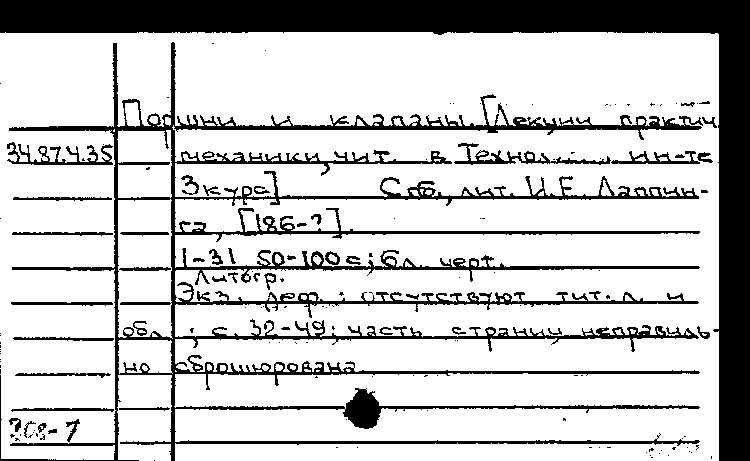 Поршни и клапаны. [Лекции практич
34.87.4.35 механики, чит. в Технол. ин-те
3 курса]. Спб., лит. И.Е. Лаппин-
га, [186-?].
1-31 50-100 с; 6 л. черт.
Литогр.
Экз. деф.: отсутствуют тит. л. и
обл.; с. 32-49; часть страниц неправиль-
но сброшюрована
308-7